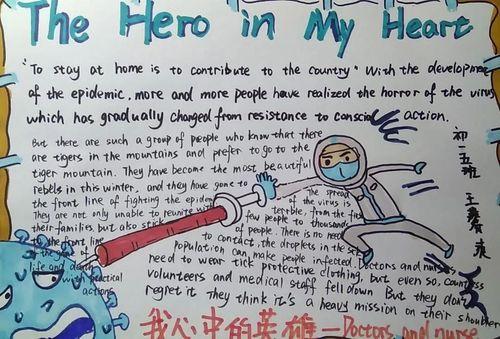 The Hero in My Heart
"To stay at home is to contribute to the country" With the development
of the epidemic, more and more people have realized the horror of the virus
which has gradually changed from resistance to conscious action.
But there are such a group of people who know that there
are tigers in the mountains and prefer to go to the
tiger mountain. They have become the most beautiful
rebels in this winter, and they have gone to
the front line of fighting the epidemic
They are not only unable to reunite with
their families, but also stick
to the front line
life and death
with practical
actions
The spread
of the virus is
terrible, from the first
few people to thousands
of people. There is no need
to contact, the droplets in the
population can make people infected. Doctors and nurses
need to wear tick protective clothing, but even so, countless
volunteers and medical staff fell down But they don't
regret it They think it's a heavy mission on their shoulders
初一五班 王
我心中的英雄—Doctors and nurse